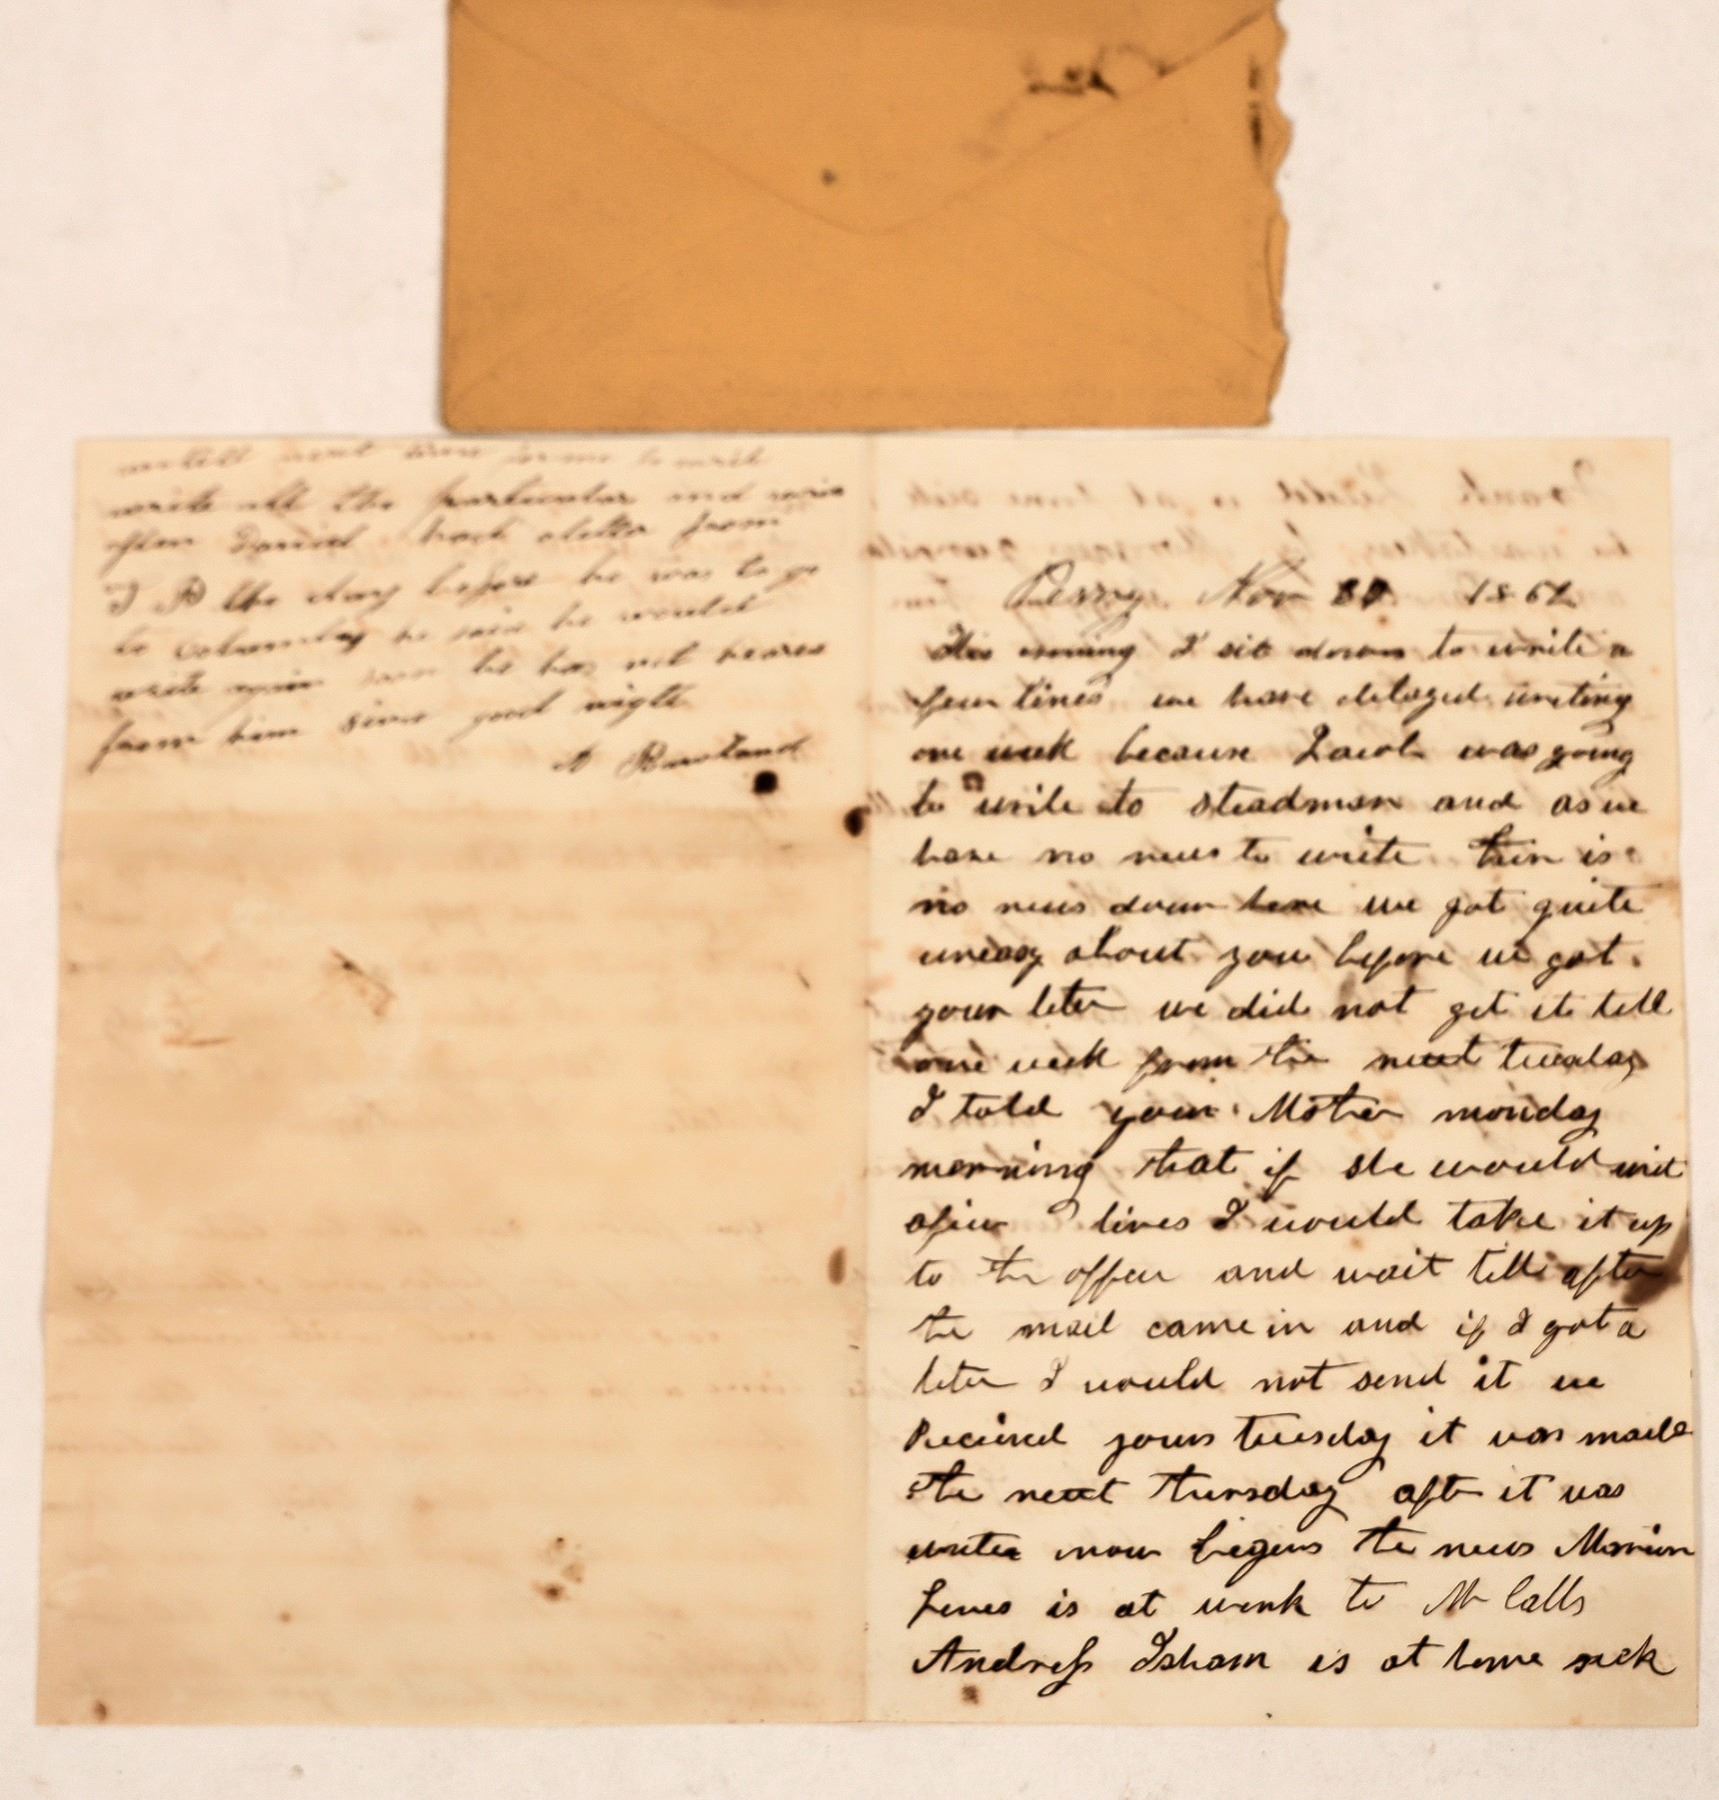 write all the particular and
when Daniel had aletter from
J B the day before he was to go
to columbus he said he would
write again soon he has not heared
from him since good night
A Rowland
Perry Nov 1862
This evening I sit down to write a
few lines we have delayed writing
one week because Jacob was going
to write to steadman and as we
have no news to write ther is
no news down here we got quite
uneasy about you before we got
your leter we did not get it tell
one week from the next tuesday
I told your Mother monday
morning that if she would writ
afew lines I would take it up
to the offece and wait tell after
the mail came in and if I got a
leter I would not send it we
Recieved yours tuesday it was maild
the next thursday aftr it was
writen now begins the news Marion
is at work to Mr Calls
Andress Isham is at home sick